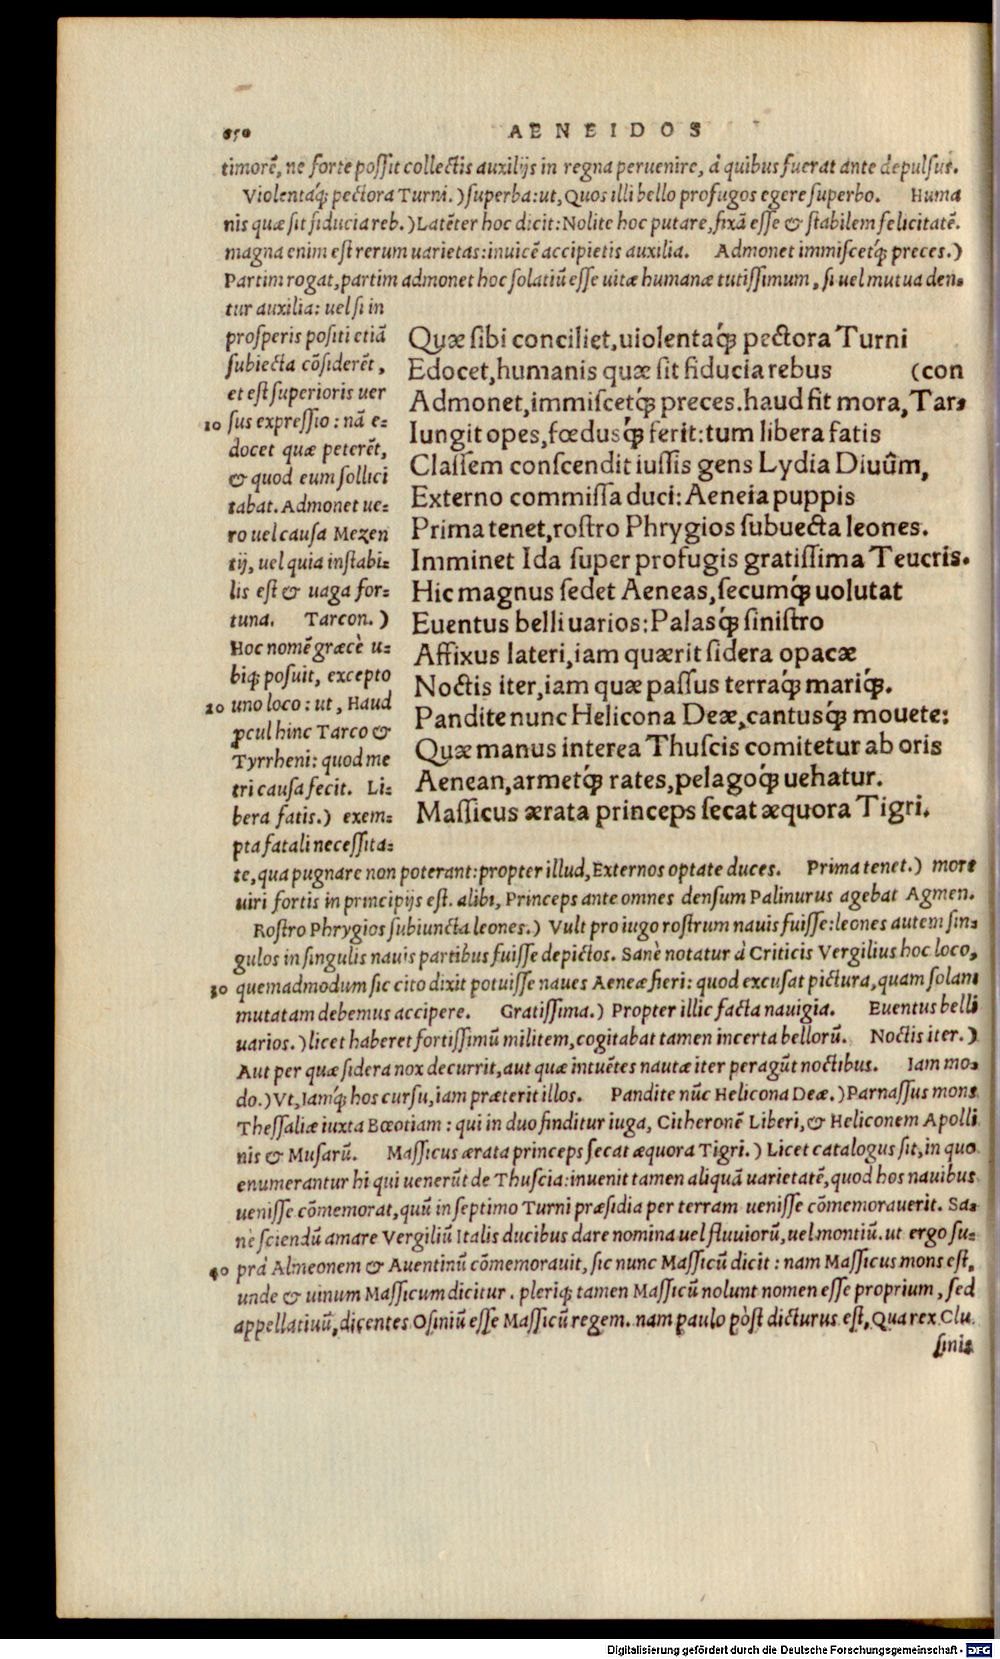 850 AENEIDOS
timorē, ne forte poſſit collectis auxilijs in regna peruenire, à quibus fuerat ante depulſus.
Violentaq́; pectora Turni.) ſuperba: ut, Quos illi bello profugos egere ſuperbo. Huma
nis quæ ſit fiducia reb.) Latēter hoc dicit: Nolite hoc putare, fixā eſſe & ſtabilem felicitatē.
magna enim eſt rerum uarietas: inuicē accipietis auxilia. Admonet immiſcetq́; preces.)
Partim rogat, partim admonet hoc ſolatiū eſſe uitæ humanæ tutiſſimum, ſi uel mutua den⸗
tur auxilia: uel ſi in
proſperis poſiti etiā
ſubiecta cōſiderēt,
et eſt ſuperioris uer
10 ſus expreſſio: nā e⸗
docet quæ peterēt,
& quod eum ſollici
tabat. Admonet ue⸗
ro uel cauſa Mezen
tij, uel quia inſtabi⸗
lis eſt & uaga for⸗
tuna. Tarcon.)
Hoc nomē græcè u⸗
biq; poſuit, excepto
20 uno loco: ut, Haud
ꝓcul hinc Tarco &
Tyrrheni: quod me
tri cauſa fecit. Li⸗
bera fatis.) exem⸗
pta fatali neceſſita⸗
Quæ ſibi conciliet, uiolentaq́; pectora Turni
Edocet, humanis quæ ſit fiducia rebus (con
Admonet, immiſcetq́; preces. haud fit mora, Tar⸗
Iungit opes, fœdusq́; ferit: tum libera fatis
Claſſem conſcendit iuſſis gens Lydia Diuûm,
Externo commiſſa duci: Aeneia puppis
Prima tenet, roſtro Phrygios ſubuecta leones.
Imminet Ida ſuper profugis gratiſſima Teucris.
Hic magnus ſedet Aeneas, ſecumq́; uolutat
Euentus belli uarios: Palasq́; ſiniſtro
Affixus lateri, iam quærit ſidera opacæ
Noctis iter, iam quæ paſſus terraq́; mariq́;.
Pandite nunc Helicona Deæ, cantusq́; mouete:
Quæ manus interea Thuſcis comitetur ab oris
Aenean, armetq́; rates, pelagoq́; uehatur.
Maſſicus ærata princeps ſecat æquora Tigri.
te, qua pugnare non poterant: propter illud, Externos optate duces. Prima tenet.) more
uiri fortis in principijs eſt. alibi, Princeps ante omnes denſum Palinurus agebat Agmen.
Roſtro Phrygios ſubiuncta leones.) Vult pro iugo roſtrum nauis fuiſſe: leones autem ſin⸗
gulos in ſingulis nauis partibus fuiſſe depictos. Sanè notatur à Criticis Vergilius hoc loco,
30 quemadmodum ſic cito dixit potuiſſe naues Aeneæ fieri: quod excuſat pictura, quam ſolam
mutatam debemus accipere. Gratiſſima.) Propter illic facta nauigia. Euentus belli
uarios.) licet haberet fortiſſimū militem, cogitabat tamen incerta bellorū. Noctis iter.)
Aut per quæ ſidera nox decurrit, aut quæ intuētes nautæ iter peragūt noctibus. Iam mo⸗
do.) Vt, Iamq́; hos curſu, iam præterit illos. Pandite nūc Helicona Deæ.) Parnaſſus mons
Theſſaliæ iuxta Bœotiam: qui in duo finditur iuga, Citheronē Liberi, & Heliconem Apolli
nis & Muſarū. Maſſicus ærata princeps ſecat æquora Tigri.) Licet catalogus ſit, in quo
enumerantur hi qui uenerūt de Thuſcia: inuenit tamen aliquā uarietatē, quod hos nauibus
ueniſſe cōmemorat, quū in ſeptimo Turni præſidia per terram ueniſſe cōmemorauerit. Sa⸗
ne ſciendū amare Vergiliū Italis ducibus dare nomina uel fluuiorū, uel montiū. ut ergo ſu⸗
40 prà Almeonem & Auentinū cōmemorauit, ſic nunc Maſſicū dicit: nam Maſſicus mons eſt,
unde & uinum Maſſicum dicitur. pleriq; tamen Maſſicū nolunt nomen eſſe proprium, ſed
appellatiuū, dicentes Oſiniū eſſe Maſſicū regem. nam paulo pòſt dicturus eſt, Qua rex Clu
ſinis
Digitalisierung gefördert durch die Deutsche Forschungsgemeinschaft - DFG